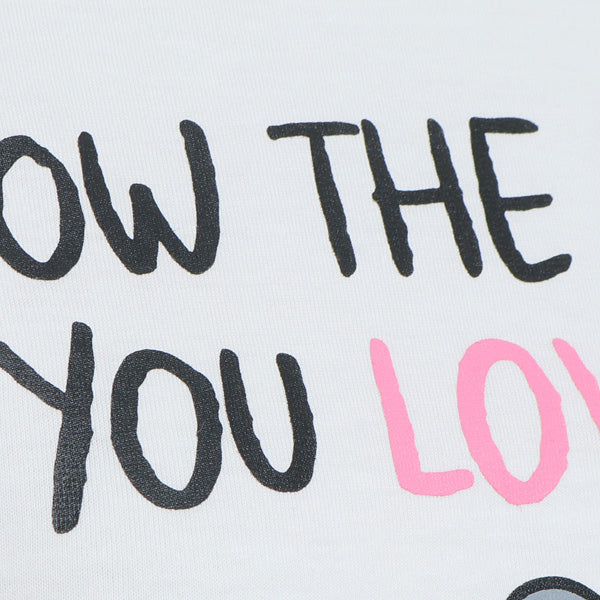 OW THE
YOU LOV